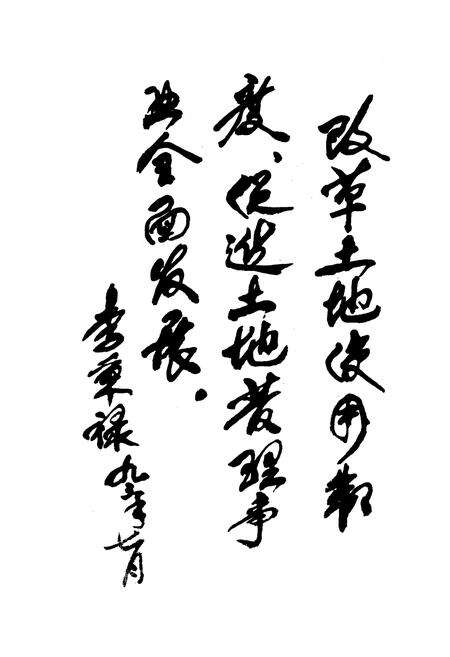 改革土地使用制
度、促进土地管理事
业全面发展。
李秉禄 九〇年七月